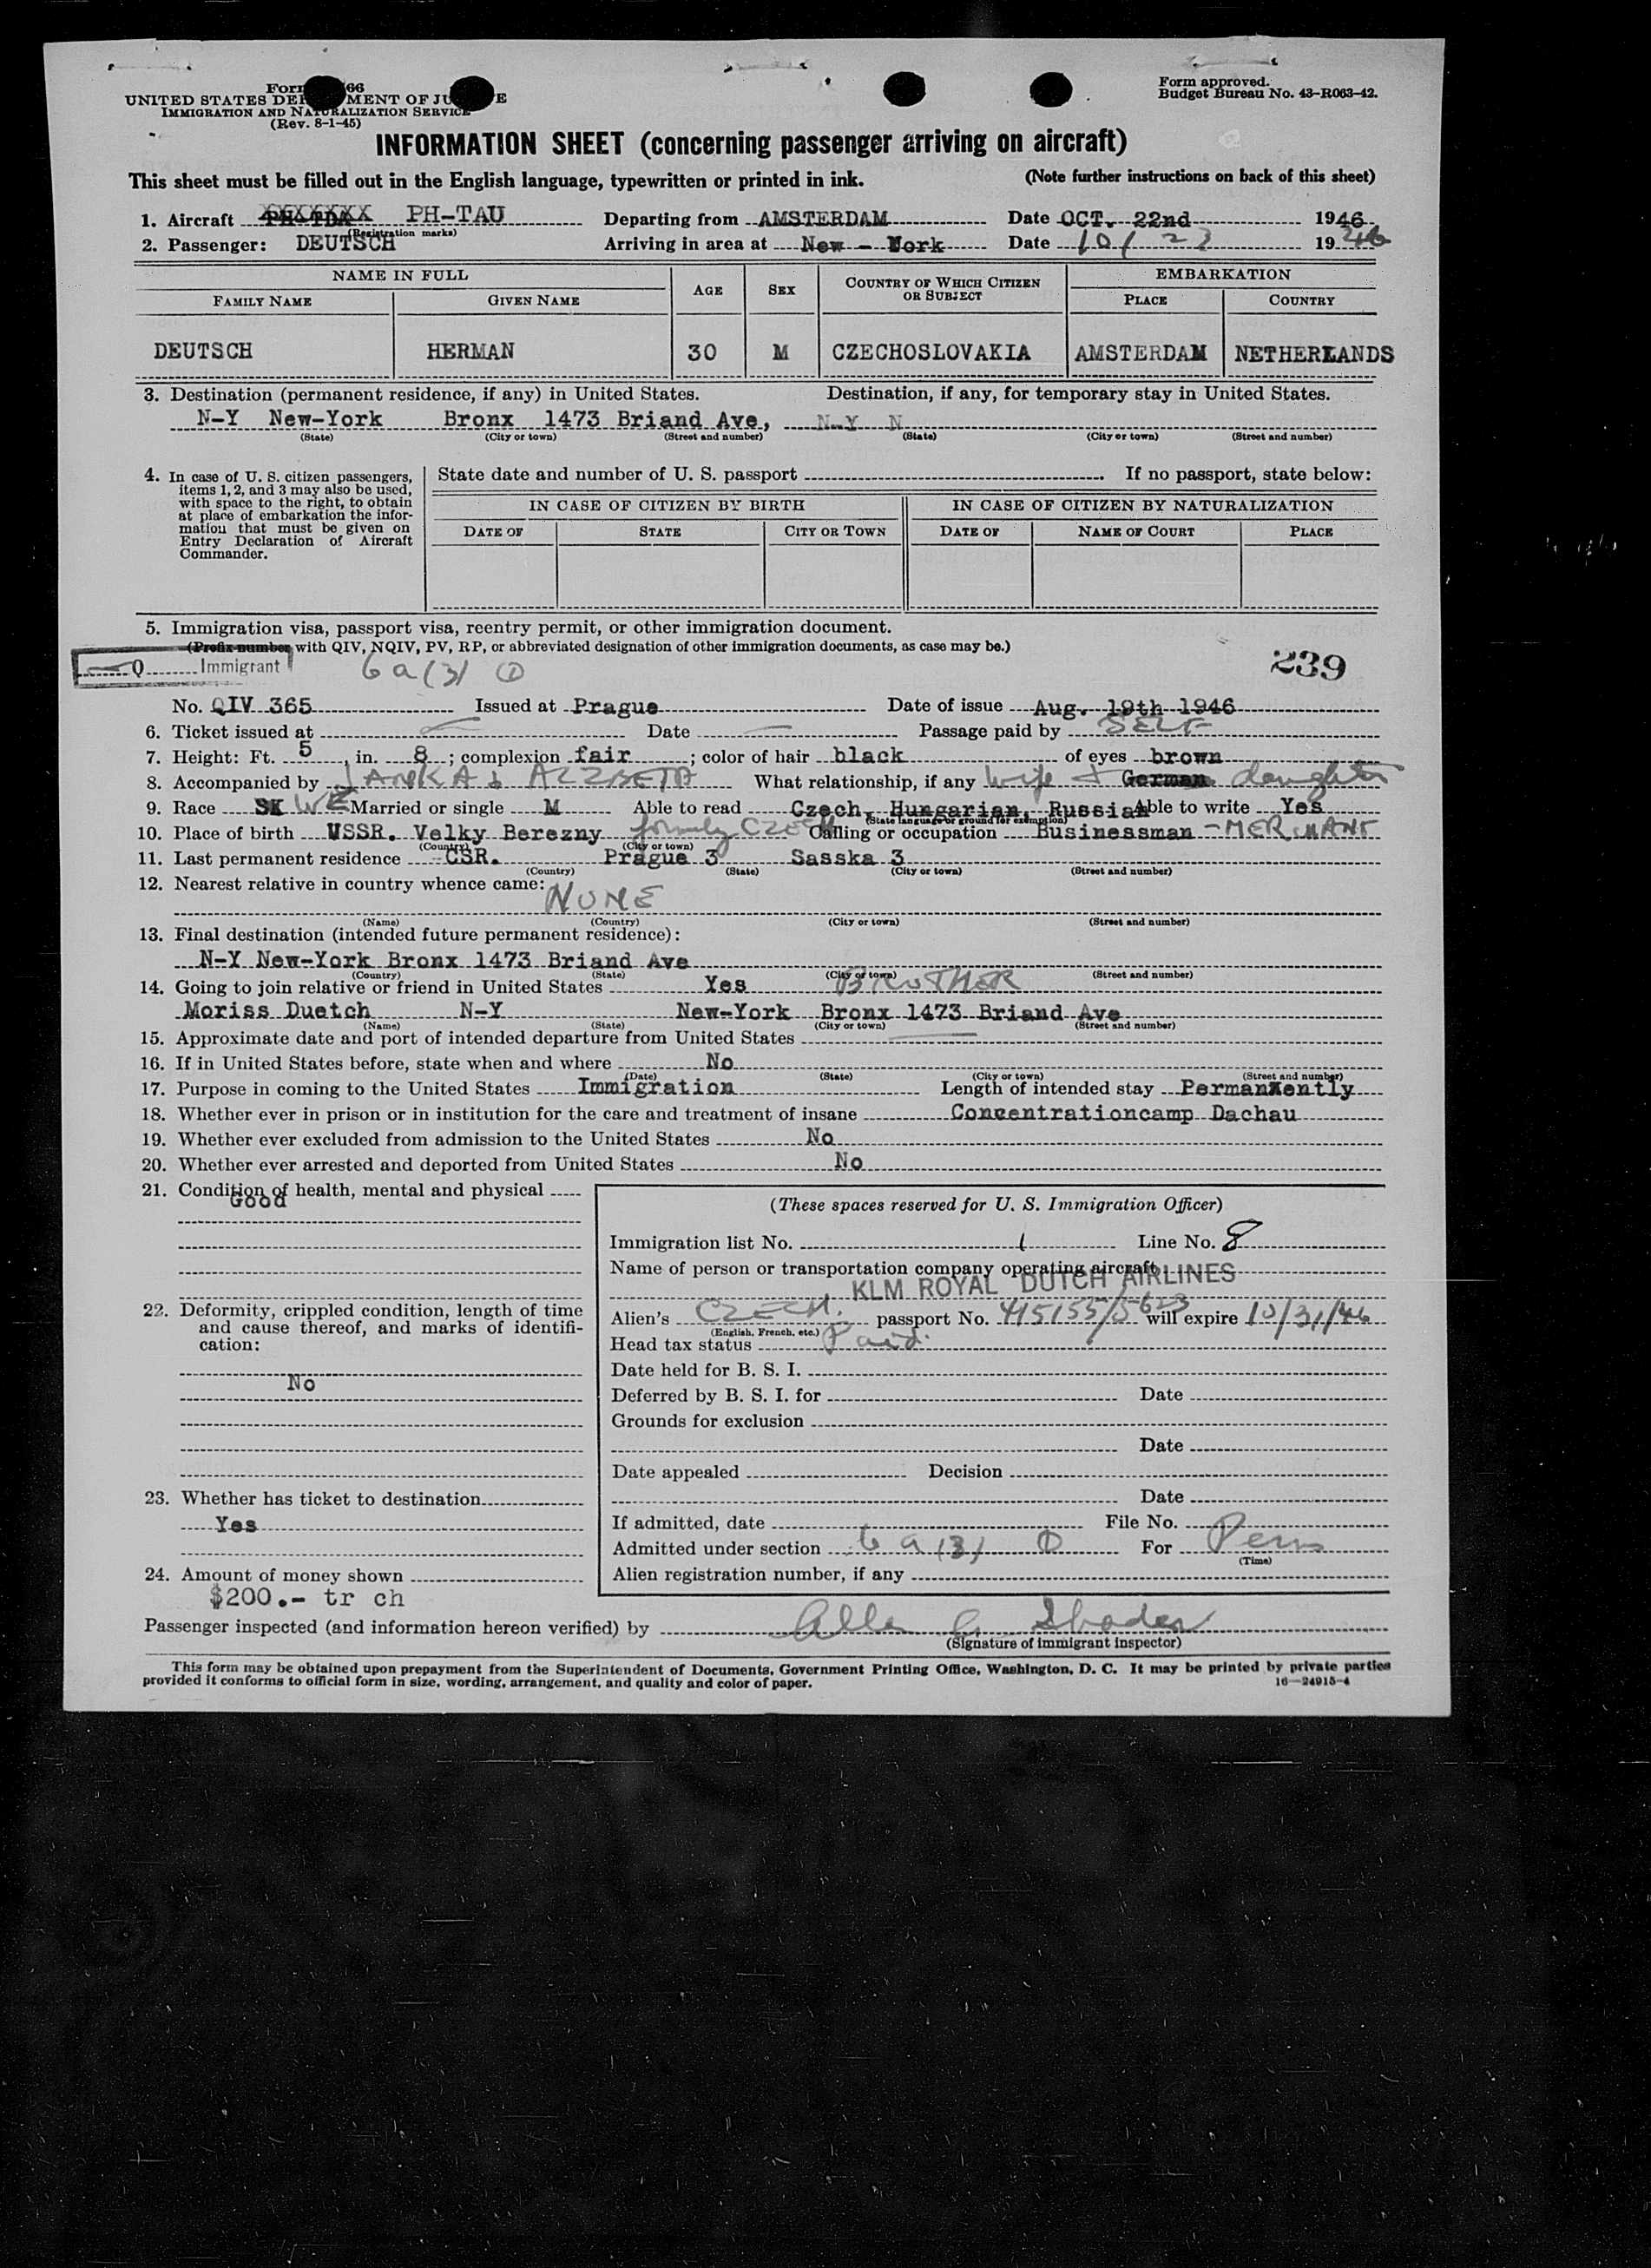 Form 66
Form approved.
UNITED STATES DEP MENT OF JU E
Budget Bureau No. 43-R063-42.
IMMIGRATION AND NATURALIZATION SERVICE
(Rev. 8-1-45)
INFORMATION SHEET (concerning passenger arriving on aircraft)
This sheet must be filled out in the English language, typewritten or printed in ink. (Note further instructions on back of this sheet)
1. Aircraft PH-TDA XXXXXXX PH-TAU Departing from AMSTERDAM Date OCT. 22nd 1946
(Registration marks)
2. Passenger: DEUTSCH Arriving in area at New - York Date 10/ 23 1946
NAME IN FULL AGE SEX COUNTRY OF WHICH CITIZEN OR SUBJECT EMBARKATION
FAMILY NAME GIVEN NAME PLACE COUNTRY
DEUTSCH HERMAN 30 M CZECHOSLOVAKIA AMSTERDAM NETHERLANDS
3. Destination (permanent residence, if any) in United States. Destination, if any, for temporary stay in United States.
N-Y New-York Bronx 1473 Briand Ave, N-Y N
(State) (City or town) (Street and number) (State) (City or town) (Street and number)
4. In case of U. S. citizen passengers, items 1, 2, and 3 may also be used, with space to the right, to obtain at place of embarkation the information that must be given on Entry Declaration of Aircraft Commander.
State date and number of U. S. passport If no passport, state below:
IN CASE OF CITIZEN BY BIRTH IN CASE OF CITIZEN BY NATURALIZATION
DATE OF STATE CITY OR TOWN DATE OF NAME OF COURT PLACE
5. Immigration visa, passport visa, reentry permit, or other immigration document.
(Prefix number with QIV, NQIV, PV, RP, or abbreviated designation of other immigration documents, as case may be.)
Q Immigrant 6a(3) ① 239
No. QIV 365 Issued at Prague Date of issue Aug. 19th 1946
6. Ticket issued at Date Passage paid by SELF
7. Height: Ft. 5, in. 8; complexion fair; color of hair black of eyes brown
8. Accompanied by JANKA & ALZBETA What relationship, if any wife + German daughter
9. Race SK WE Married or single M Able to read Czech, Hungarian, Russian Able to write Yes
(State language or ground for exemption)
10. Place of birth USSR. Velky Berezny formerly CZECH Calling or occupation Businessman - MERCHANT
(Country) (City or town)
11. Last permanent residence CSR. Prague 3 Sasska 3
(Country) (State) (City or town) (Street and number)
12. Nearest relative in country whence came: NONE
(Name) (Country) (City or town) (Street and number)
13. Final destination (intended future permanent residence):
N-Y New-York Bronx 1473 Briand Ave
(Country) (State) (City or town) (Street and number)
14. Going to join relative or friend in United States Yes BROTHER
Moriss Duetch N-Y New-York Bronx 1473 Briand Ave
(Name) (State) (City or town) (Street and number)
15. Approximate date and port of intended departure from United States
16. If in United States before, state when and where No
(Date) (State) (City or town) (Street and number)
17. Purpose in coming to the United States Immigration Length of intended stay Permanxently
18. Whether ever in prison or in institution for the care and treatment of insane Concentrationcamp Dachau
19. Whether ever excluded from admission to the United States No
20. Whether ever arrested and deported from United States No
21. Condition of health, mental and physical
Good
(These spaces reserved for U. S. Immigration Officer)
Immigration list No. 1 Line No. 8
Name of person or transportation company operating aircraft
KLM ROYAL DUTCH AIRLINES
22. Deformity, crippled condition, length of time and cause thereof, and marks of identification:
No
Alien's CZECH. passport No. 415155/5623 will expire 10/31/46
(English, French, etc.)
Head tax status Paid.
Date held for B. S. I.
Deferred by B. S. I. for Date
Grounds for exclusion
Date
Date appealed Decision
23. Whether has ticket to destination
Yes
Date
If admitted, date File No.
Admitted under section 6a(3) ① For Perm
(Time)
24. Amount of money shown
$200.- tr ch
Alien registration number, if any
Passenger inspected (and information hereon verified) by
(Signature of immigrant inspector)
This form may be obtained upon prepayment from the Superintendent of Documents, Government Printing Office, Washington, D. C. It may be printed by private parties
provided it conforms to official form in size, wording, arrangement, and quality and color of paper. 16-24915-4